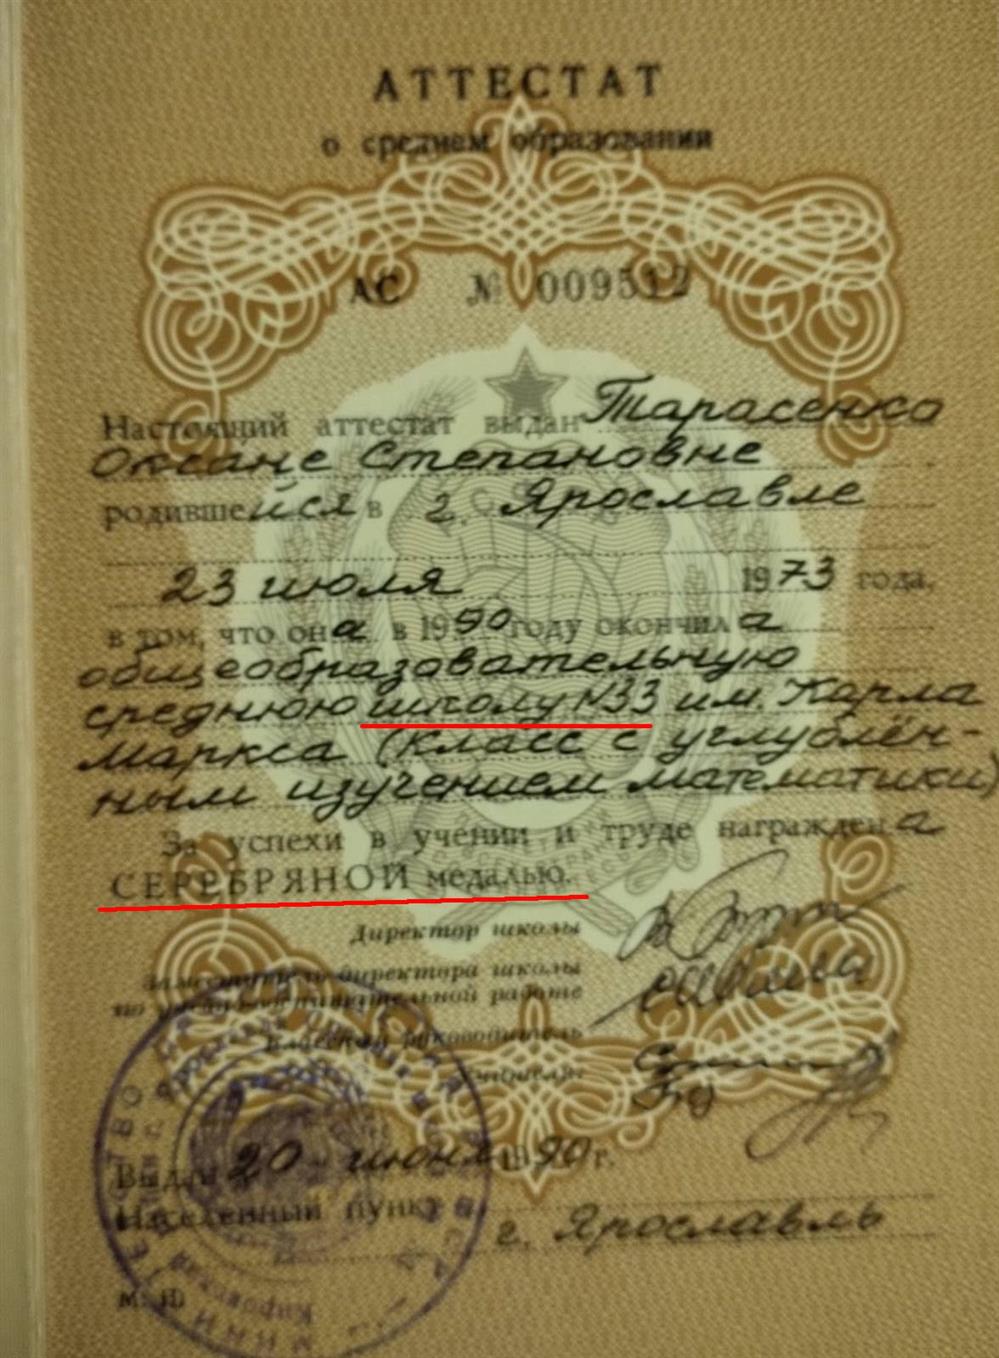 АТТЕСТАТ
о среднем образовании
АС № 009512
Настоящий аттестат выдан Тарасенко
Оксане Степановне
родившейся в г. Ярославле
23 июля 1973 года,
в том, что она в 1990 году окончила
общеобразовательную
среднюю школу №33 им. Карла
Маркса (класс с углублён-
ным изучением математики)
За успехи в учении и труде награждена
СЕРЕБРЯНОЙ медалью.
Директор школы
Заместитель директора школы
по учебно-воспитательной работе
Классный руководитель
Учителя:
Выдан 20 июня 1990 г.
Населенный пункт г. Ярославль
М. П.